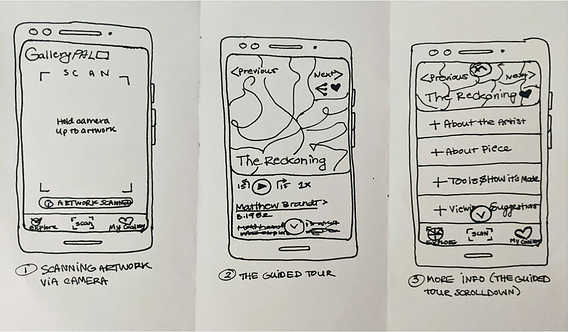 GalleryPAL
SCAN
Hold camera
up to artwork
ARTWORK SCANNING
explore
scan
My Gallery
① SCANNING ARTWORK
VIA CAMERA
<Previous
Next>
The Reckoning
15
15
1x
Matthew Brandt>
B. 1982
② THE GUIDED TOUR
<Previous
Next>
The Reckoning
+ About the Artist
+ About Piece
+ Tools & How it's Made
+ Viewing Suggestions
EXPLORE
SCAN
My Gallery
③ MORE INFO (THE GUIDED
TOUR SCROLLDOWN)